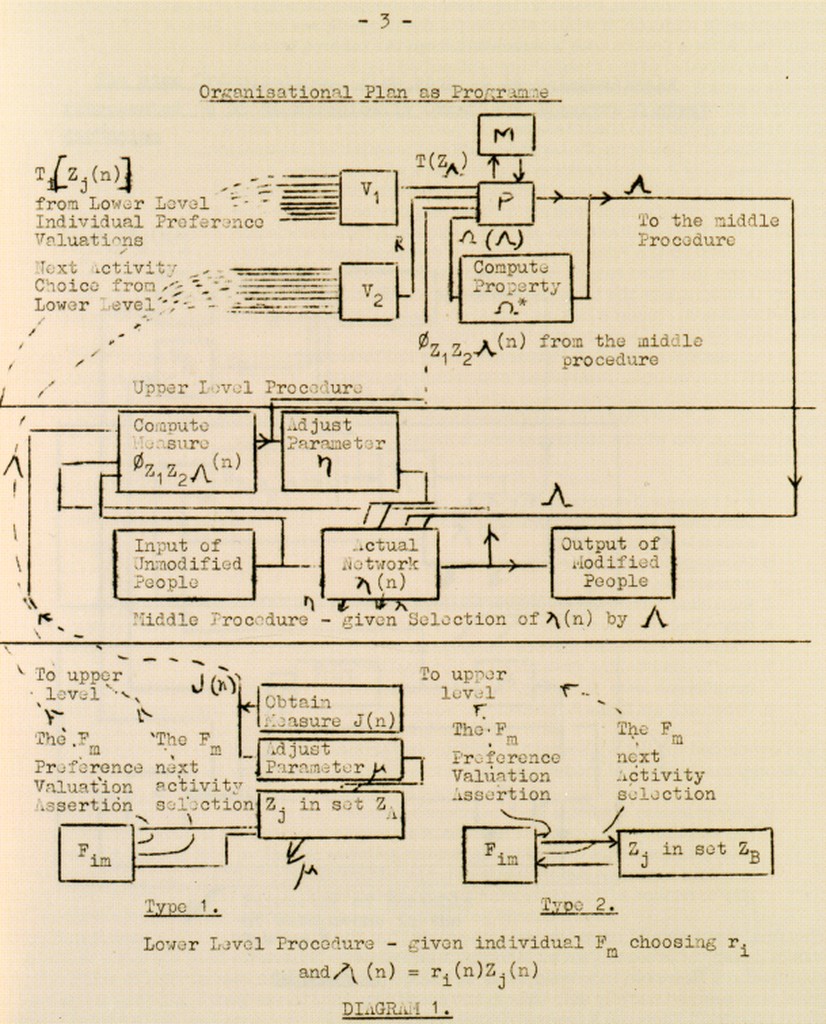 - 3 -
Organisational Plan as Programme
M
Tᵢ[Zⱼ(n)]
from Lower Level
Individual Preference
Valuations
V₁
T(Z_Λ)
P
Λ
To the middle
Procedure
R
Ω (Λ)
Next Activity
Choice from
Lower Level
V₂
Compute
Property
Ω*
Øz₁z₂Λ(n) from the middle
procedure
Upper Level Procedure
Compute
Measure
Øz₁z₂Λ(n)
Adjust
Parameter
η
Λ
Λ
Input of
Unmodified
People
Actual
Network
λ(n)
Output of
Modified
People
η λ
Middle Procedure - given Selection of λ(n) by Λ
To upper
level
J(n)
Obtain
Measure J(n)
The Fm
Preference
Valuation
Assertion
The Fm
next
activity
selection
Adjust
Parameter μ
Zⱼ in set Z_A
Fim
μ
Type 1.
To upper
level
The Fm
Preference
Valuation
Assertion
The Fm
next
Activity
selection
Fim
Zⱼ in set Z_B
Type 2.
Lower Level Procedure - given individual Fm choosing rᵢ
and λ (n) = rᵢ(n)Zⱼ(n)
DIAGRAM 1.